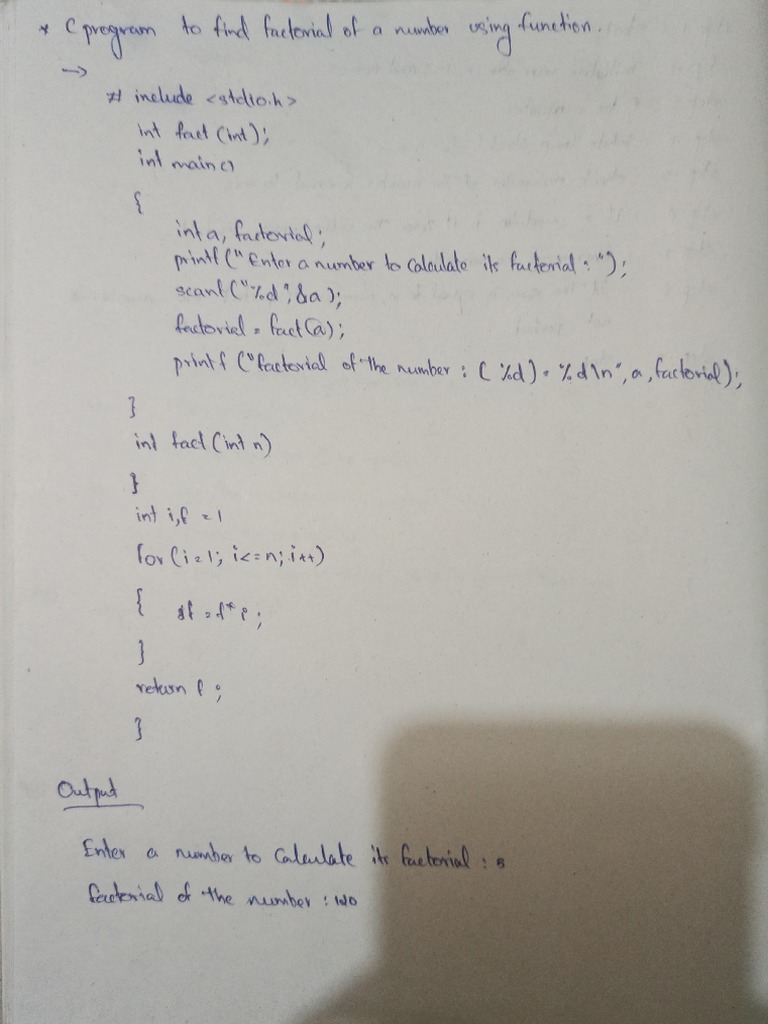 * C program to find factorial of a number using function.
→
# include <stdio.h>
int fact (int);
int main()
{
int a, factorial;
printf ("Enter a number to Calculate its factorial : ");
scanf ("%d", &a);
factorial = fact(a);
printf ("factorial of the number : (%d) = %d\n", a, factorial);
}
int fact (int n)
}
int i,f = 1
for (i=1; i<=n; i++)
{ f = f* i;
}
return f;
}
Output
Enter a number to Calculate its factorial : 5
factorial of the number : 120